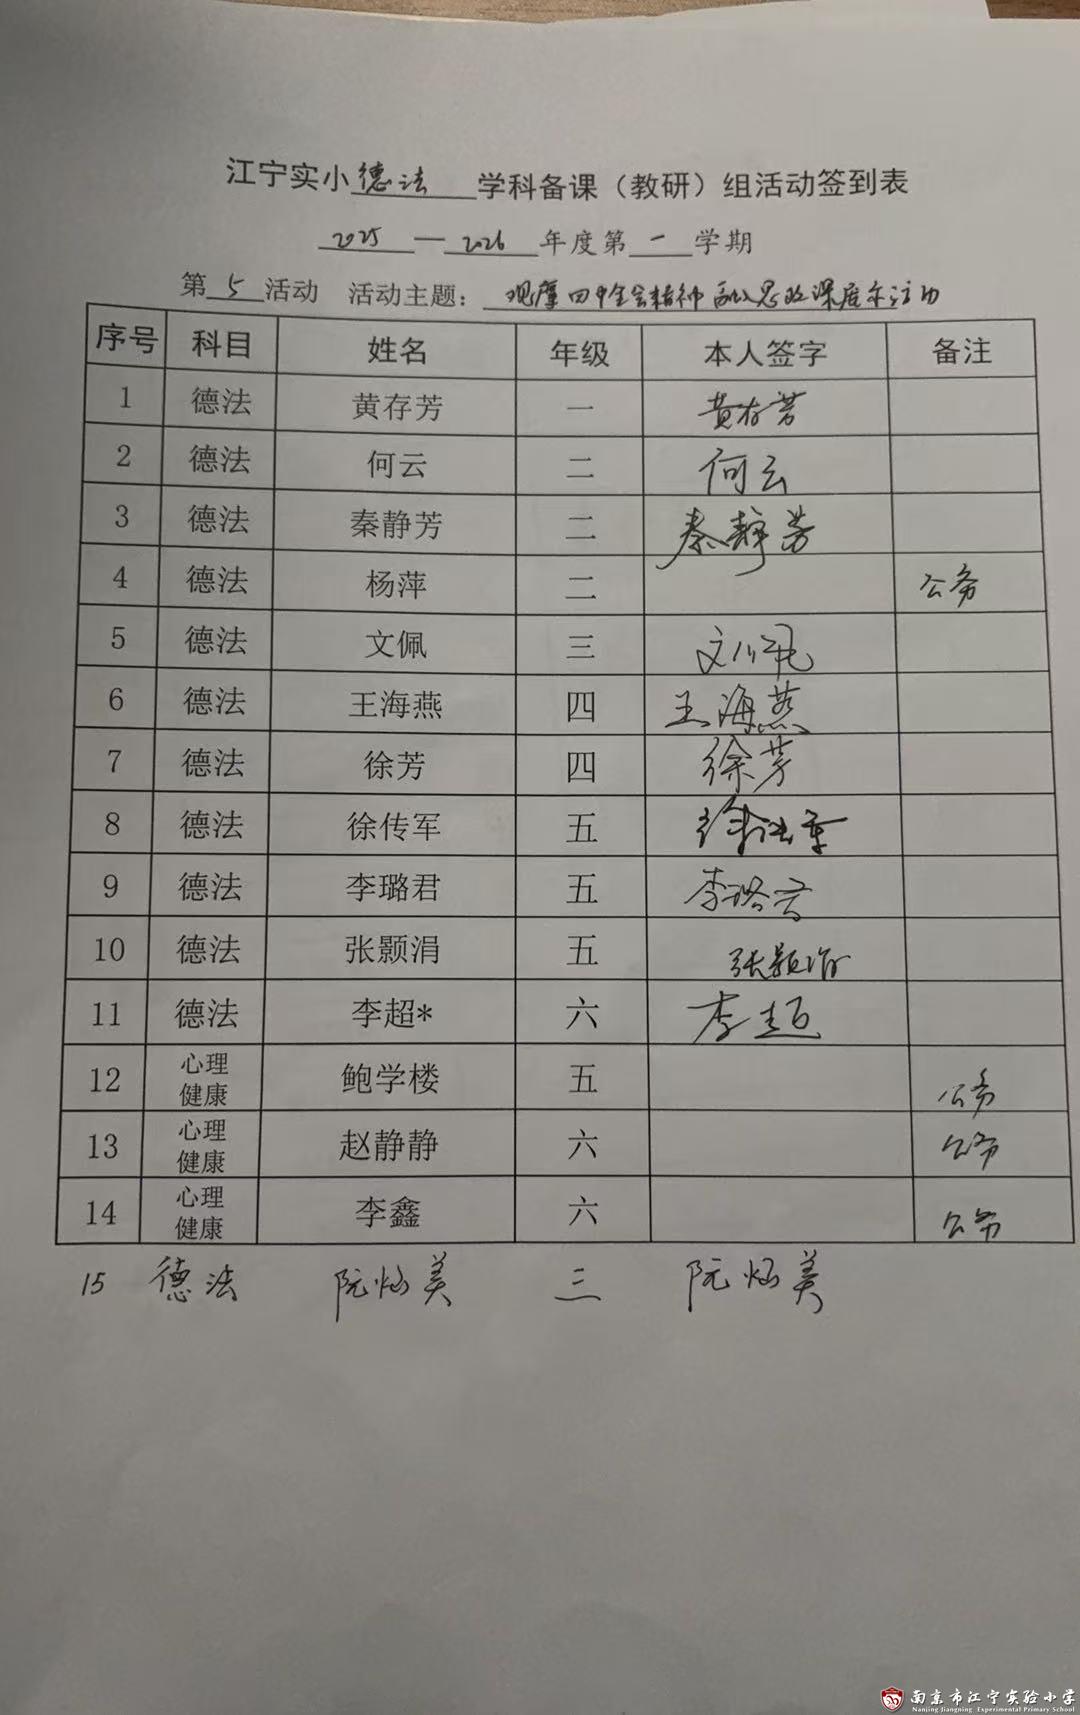 江宁实小德法学科备课（教研）组活动签到表
2025—2026年度第一学期
第5活动 活动主题：观摩四中全会精神融入思政深度活动
序号 科目 姓名 年级 本人签字 备注
1 德法 黄存芳 一 黄存芳
2 德法 何云 二 何云
3 德法 秦静芳 二 秦静芳
4 德法 杨萍 二 公务
5 德法 文佩 三 文佩
6 德法 王海燕 四 王海燕
7 德法 徐芳 四 徐芳
8 德法 徐传军 五 徐传军
9 德法 李璐君 五 李璐君
10 德法 张颢涓 五 张颢涓
11 德法 李超* 六 李超
12 心理健康 鲍学楼 五 公务
13 心理健康 赵静静 六 公务
14 心理健康 李鑫 六 公务
15 德法 阮灿美 三 阮灿美
南京市江宁实验小学
Nanjing Jiangning Experimental Primary School